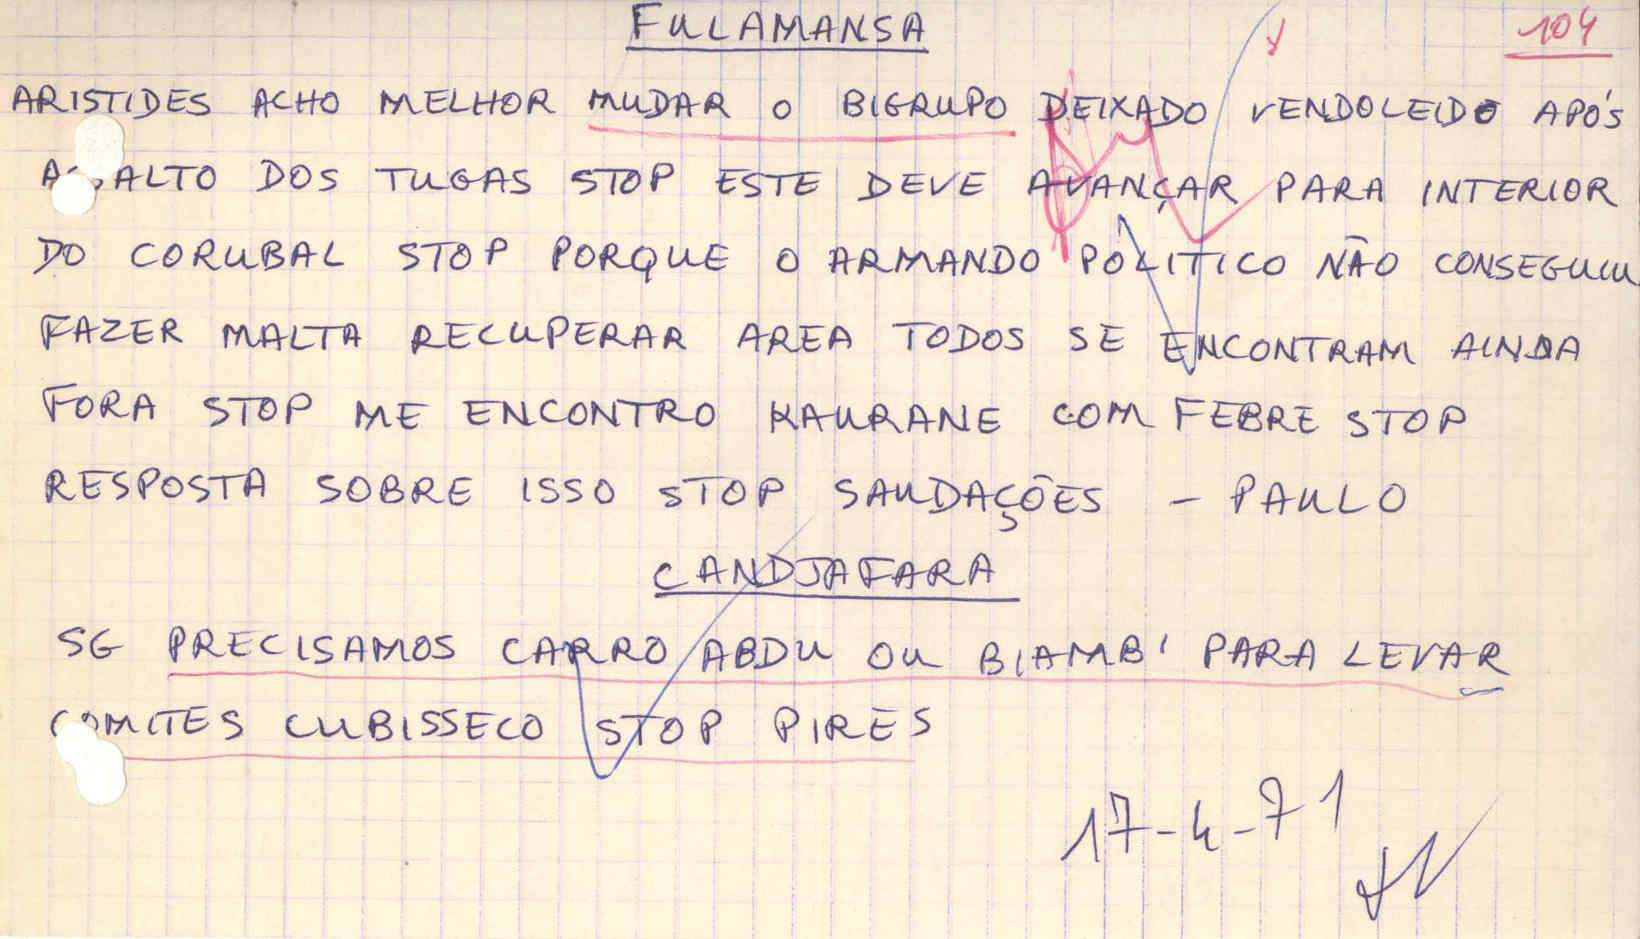 FULAMANSA
104
ARISTIDES ACHO MELHOR MUDAR O BIGRUPO DEIXADO VENDOLEIDO APÓS
ASSALTO DOS TUGAS STOP ESTE DEVE AVANÇAR PARA INTERIOR
DO CORUBAL STOP PORQUE O ARMANDO POLITICO NÃO CONSEGUIU
FAZER MALTA RECUPERAR AREA TODOS SE ENCONTRAM AINDA
FORA STOP ME ENCONTRO KAURANE COM FEBRE STOP
RESPOSTA SOBRE ISSO STOP SAUDAÇÕES - PAULO
CANDJAFARA
SG PRECISAMOS CARRO ABDU OU BIAMBI PARA LEVAR
COMITES CUBISSECO STOP PIRES
17-4-71